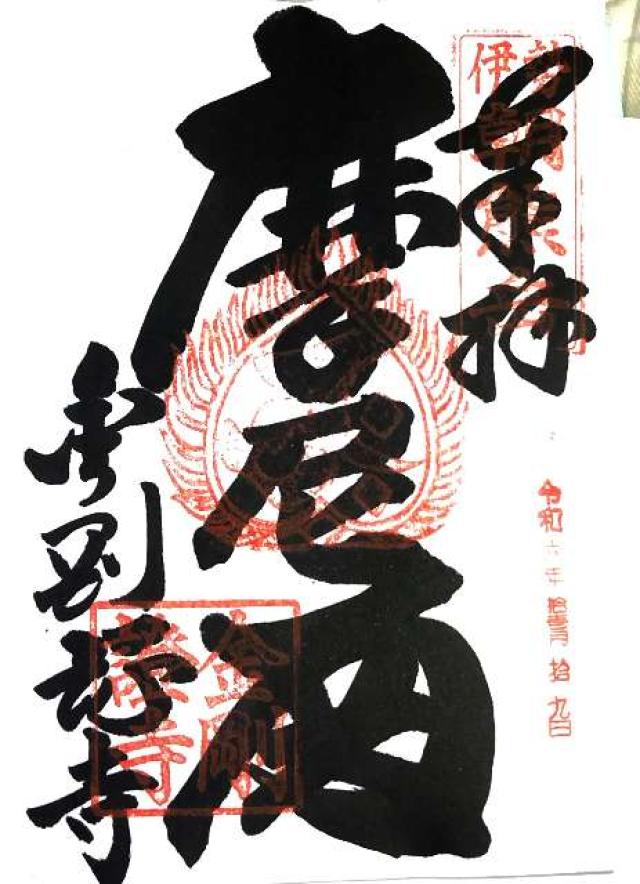 奉拝
伊勢朝熊
令和六年拾壹月拾九日
摩尼殿
金剛證寺
金剛
證寺